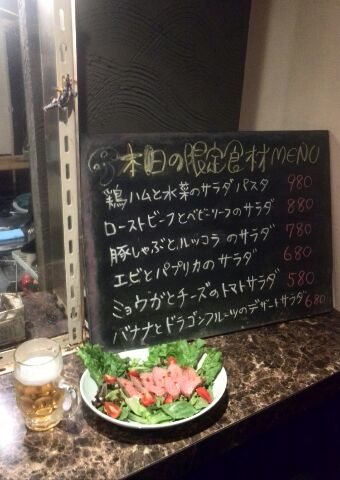 本日の限定食材MENU
鶏ハムと水菜のサラダパスタ 980
ローストビーフとベビーリーフのサラダ 880
豚しゃぶとルッコラのサラダ 780
エビとパプリカのサラダ 680
ミョウガとチーズのトマトサラダ 580
バナナとドラゴンフルーツのデザートサラダ 680